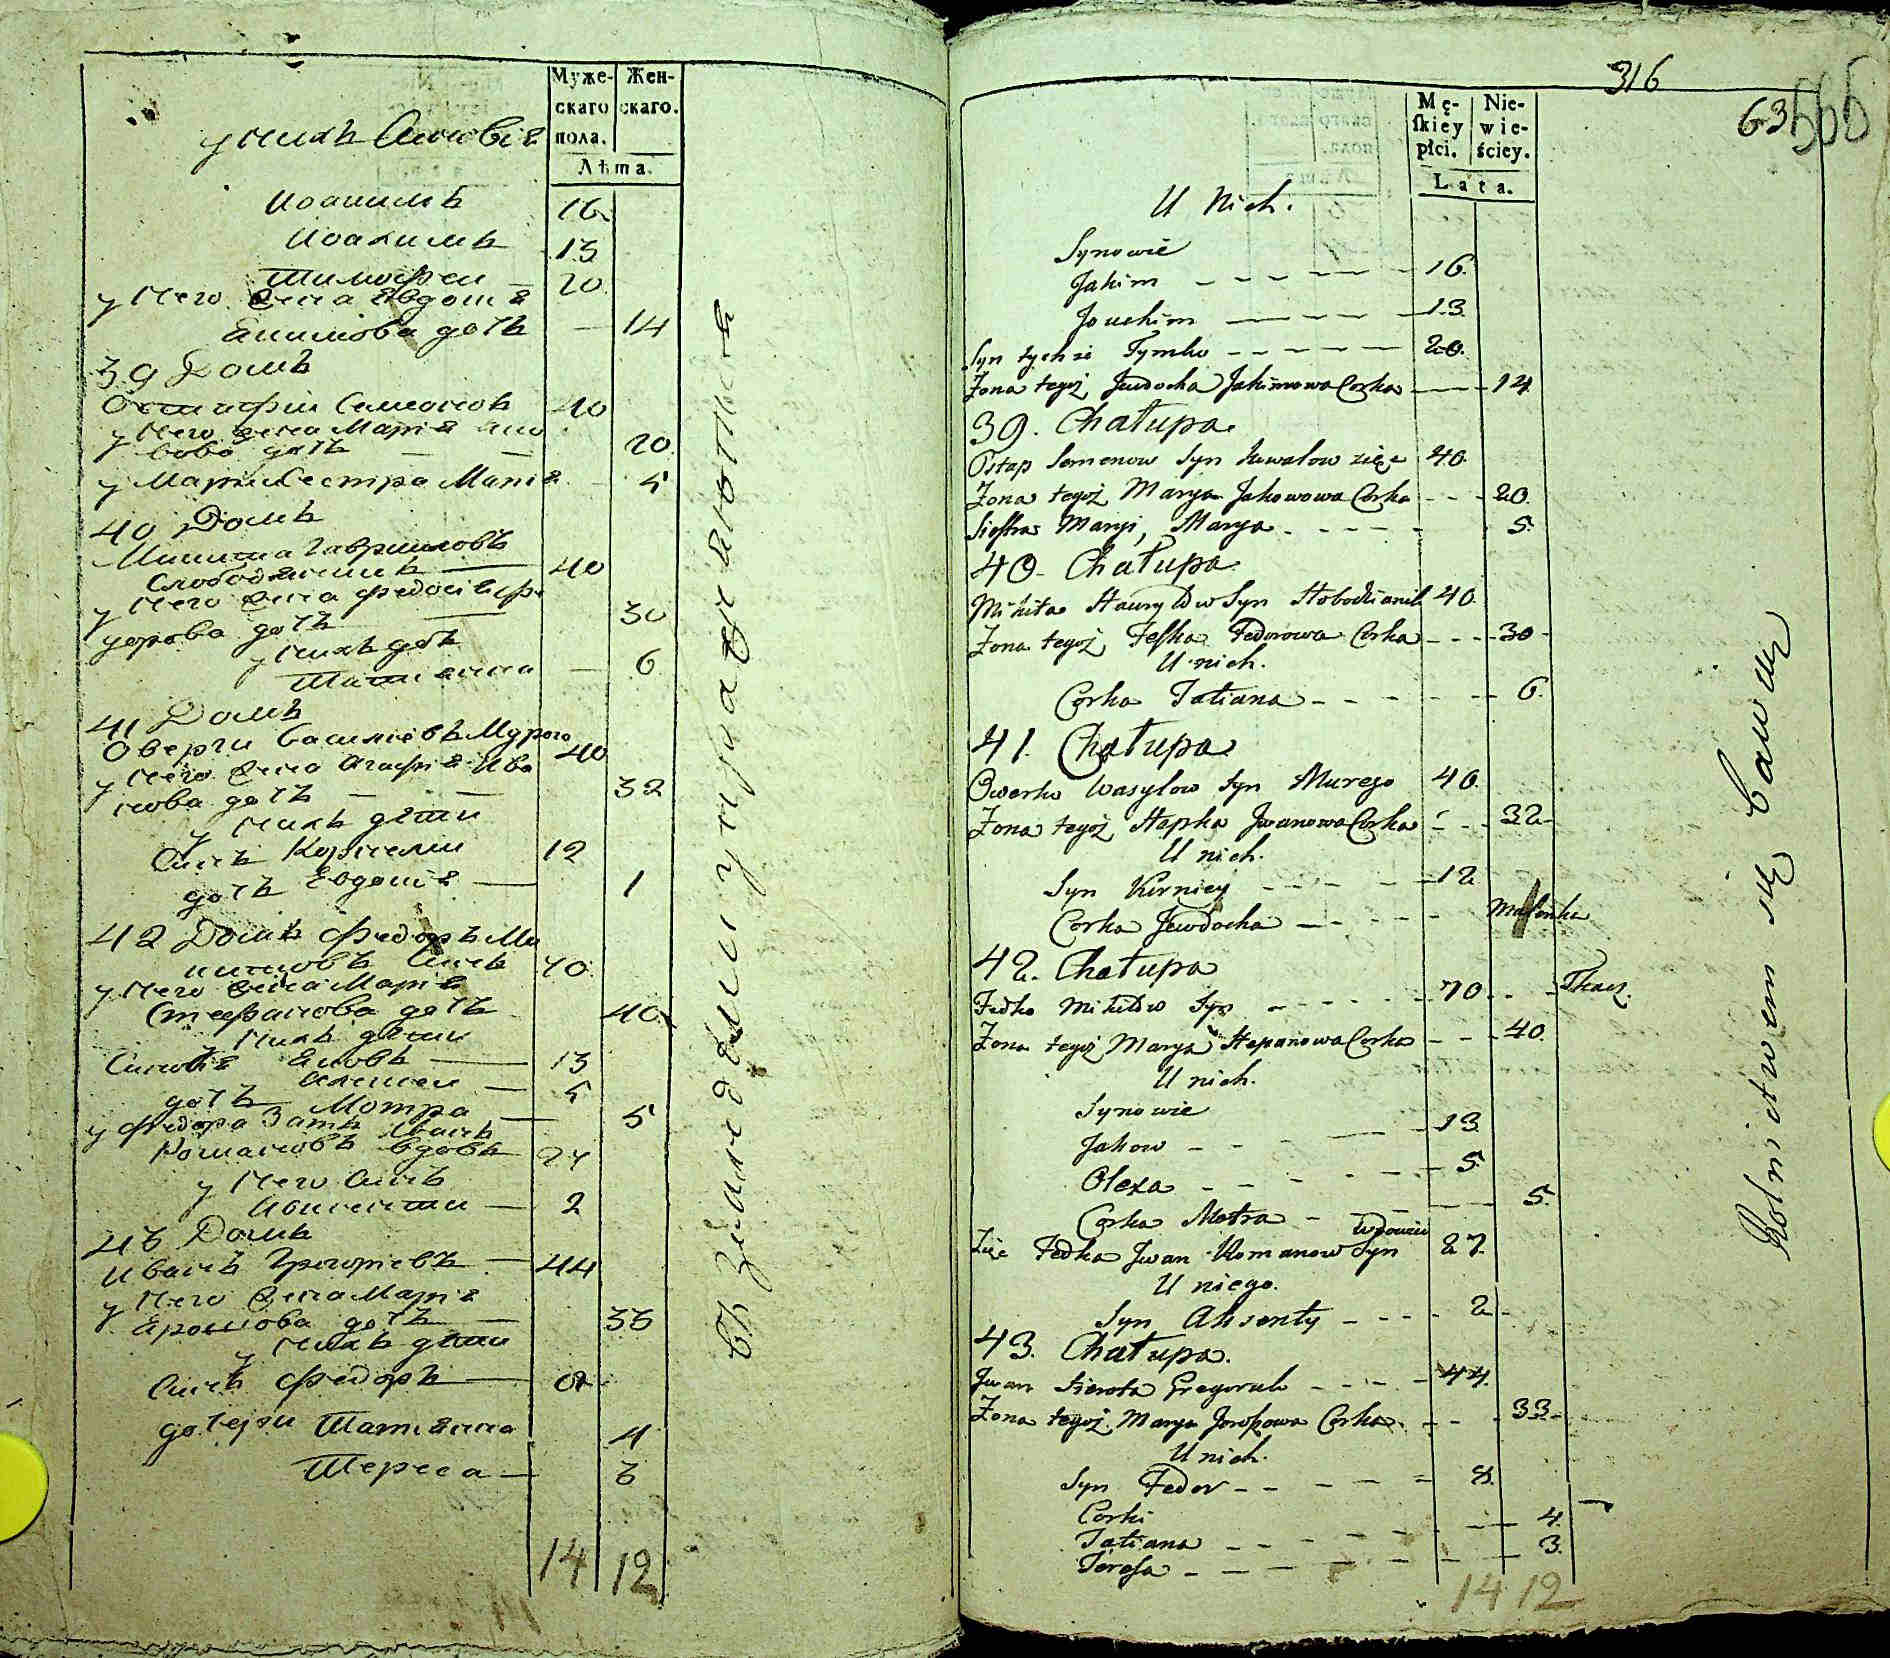 Муже- Жен-
скаго скаго.
пола.
Лѣта.
у нихъ Синовія
Иоакимъ 16
Иоахимъ 13
Тимофеи 20
у него жена Евдокия
Екимова дочь 14
39 Домъ
Остафии Семеоновъ 40
у него жена Мария Яко
вова дочь 20
у Марии Сестра Мария 5
40 Домъ
Микита Гавриловъ
Слободяникъ 40
у него жена Федосия Фе
дорова дочь 30
у нихъ дочь
Татиянна 6
41 Домъ
Оверки Василиевъ Мурого 40
у него жена Агафия Ива
нова дочь 32
у нихъ дети
Синъ Корнеии 12
дочь Евдокия 1
42 Домъ Федоръ Ми
китовъ Синъ 70
у него жена Мария
Стефанова дочь 40
у нихъ дети
Синовя Яковъ 13
Алексеи 5
дочь Мотра 5
у Федора Зять Иванъ
Романовъ вдовъ 27
у него Синъ
Авксенти 2
43 Домъ
Иванъ Григориевъ 44
у него жена Мария
дочь 33
у нихъ дети
Синъ Федоръ 8
дочери Татиянна 4
Тереса 3
14 12
316
63
566
Mę- Nie-
skiey wie-
płci. ściey.
Lata.
U Nich.
Synowie
Jakim 16.
Jouchim 13.
Syn tychże Tymko 20.
Żona tegoż Jewdocha Jakimowa Corka 14
39. Chałupa.
Ostap Semenow Syn zięć 40.
Żona tegoż Marya Jakowowa Corka 20.
Siostra Maryi, Marya 5.
40. Chałupa.
Mikita Hawryłów Syn Słobodzianik 40.
Żona tegoż Feska Fedorowa Corka 30
U nich.
Corka Tatiana 6.
41. Chałupa
Owerko Wasylow Syn Murego 40.
Żona tegoż Hapka Jwanowa Corka 32
U nich.
Syn Kirniey 12
Corka Jewdocha maleńka
42. Chałupa
Fedko Mikitów Syn 70 Tkacz.
Żona tegoż Marya Stepanowa Corka 40.
U nich.
Synowie
Jakow 13.
Olexa 5.
Corka Motra 5.
Zięć Fedka Jwan Romanow Syn wdowiec 27.
U niego.
Syn Aksenty 2
43. Chałupa.
Jwan Sierota Gregoruk 44.
Żona tegoż Marya Corka 33
U nich.
Syn Fedor 8.
Corki
Tatiana 4.
Teresa 3.
14 12
Rolnictwem się bawią